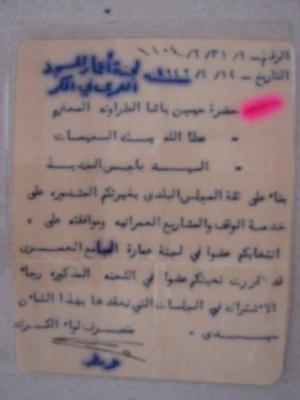 الرقم - ١ / ٣١ / ٦ / ١٤٠٤
التاريخ - ١٤ / ٤ /
لجنة اعمار المسجد
العمري في الكرك
حضرة حسين باشا الطراونه المحترم
- عطا الله السحيمات
- السيد
بناء على ثقة المجلس البلدي بغيرتكم الشهيره على
خدمة الوقف والمشاريع العمرانيه وموافقته على
انتخابكم عضوا في لجنة عمارة الجامع العمري
قد قررت تعيينكم عضوا في اللجنه المذكوره رجاء
الاشتراك في الجلسات التي تعقدها بهذا الشأن
متصرف لواء الكرك